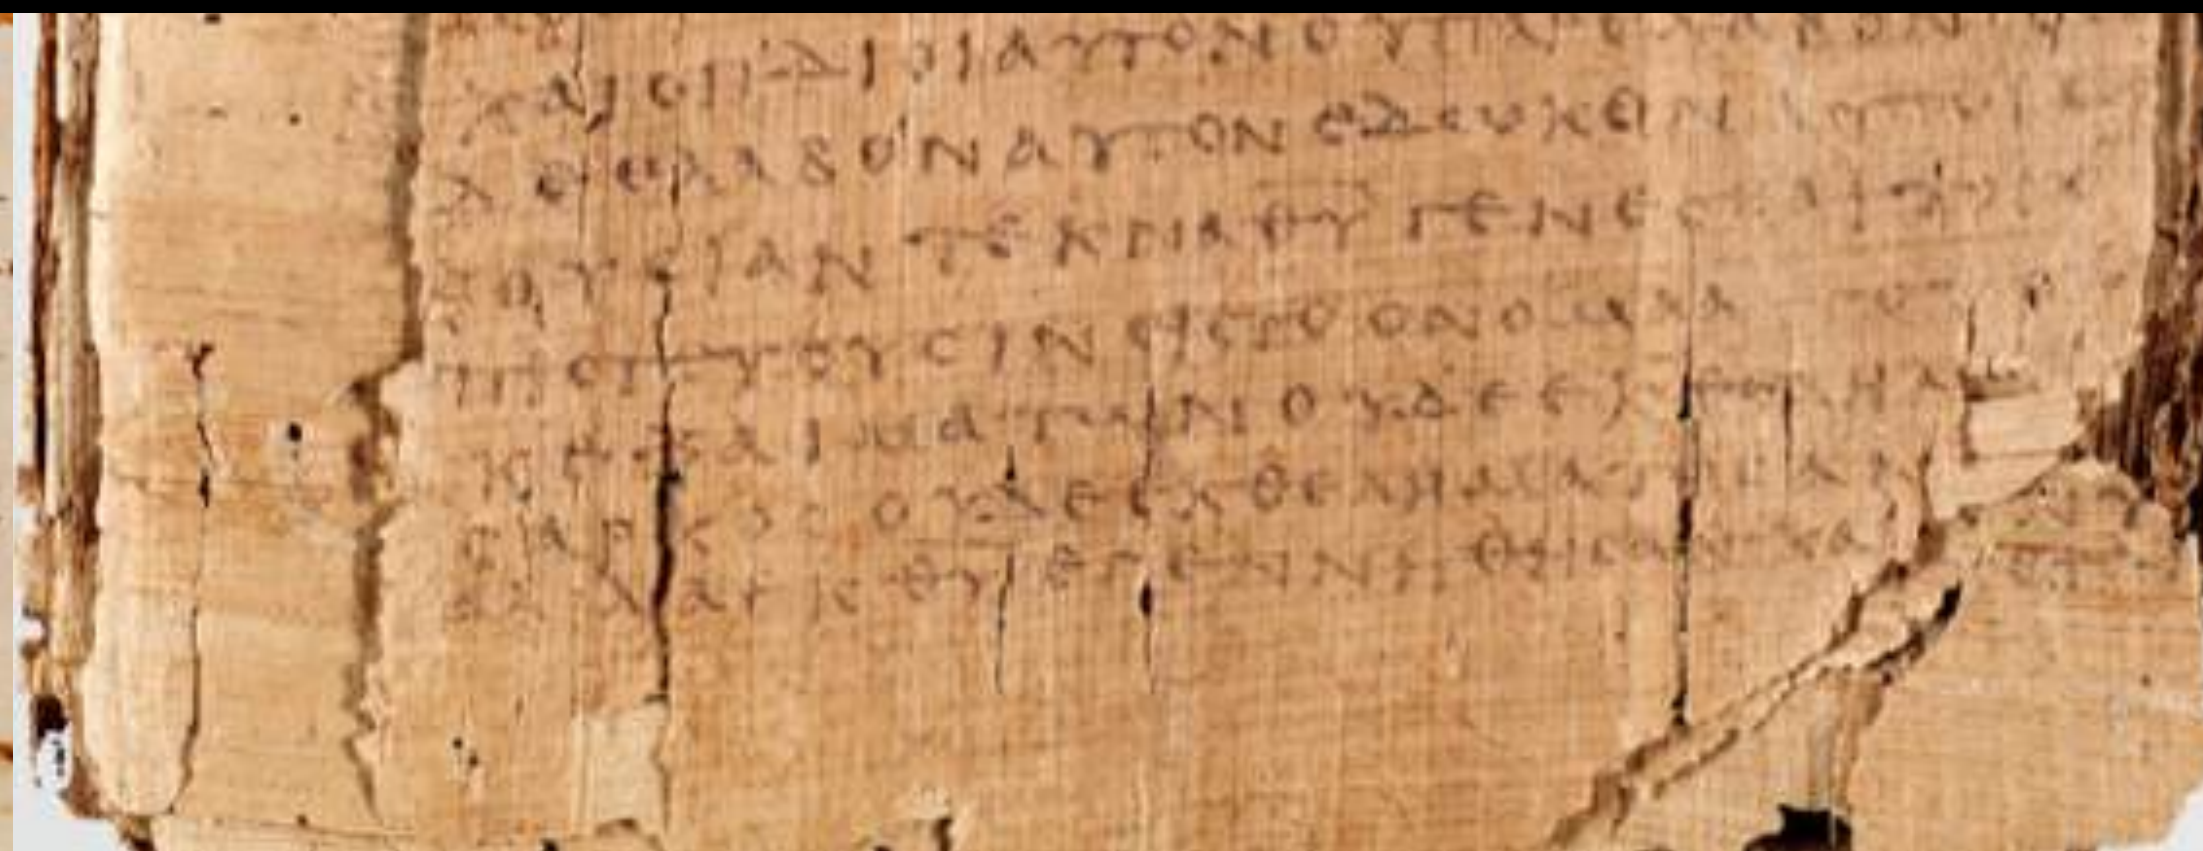 ΚΑΙ ΟΙ ΙΔΙΟΙ ΑΥΤΟΝ ΟΥ ΠΑΡΕΛΑΒΟΝ
ΔΕ ΕΛΑΒΟΝ ΑΥΤΟΝ ΕΔΩΚΕΝ
ΞΟΥϹΙΑΝ ΤΕΚΝΑ Θ̅Υ̅ ΓΕΝΕϹΘΑΙ
ΠΙϹΤΕΥΟΥϹΙΝ ΕΙϹ ΤΟ ΟΝΟΜΑ
Κ ΕΞ ΑΙΜΑΤΩΝ ΟΥΔΕ ΕΚ ΘΕΛΗΜΑ
ϹΑΡΚΟϹ ΟΥΔΕ ΕΚ ΘΕΛΗΜΑΤΟϹ
ΑΛΛ ΕΚ Θ̅Υ̅ ΕΓΕΝΝΗΘΗϹΑΝ ΚΑΙ